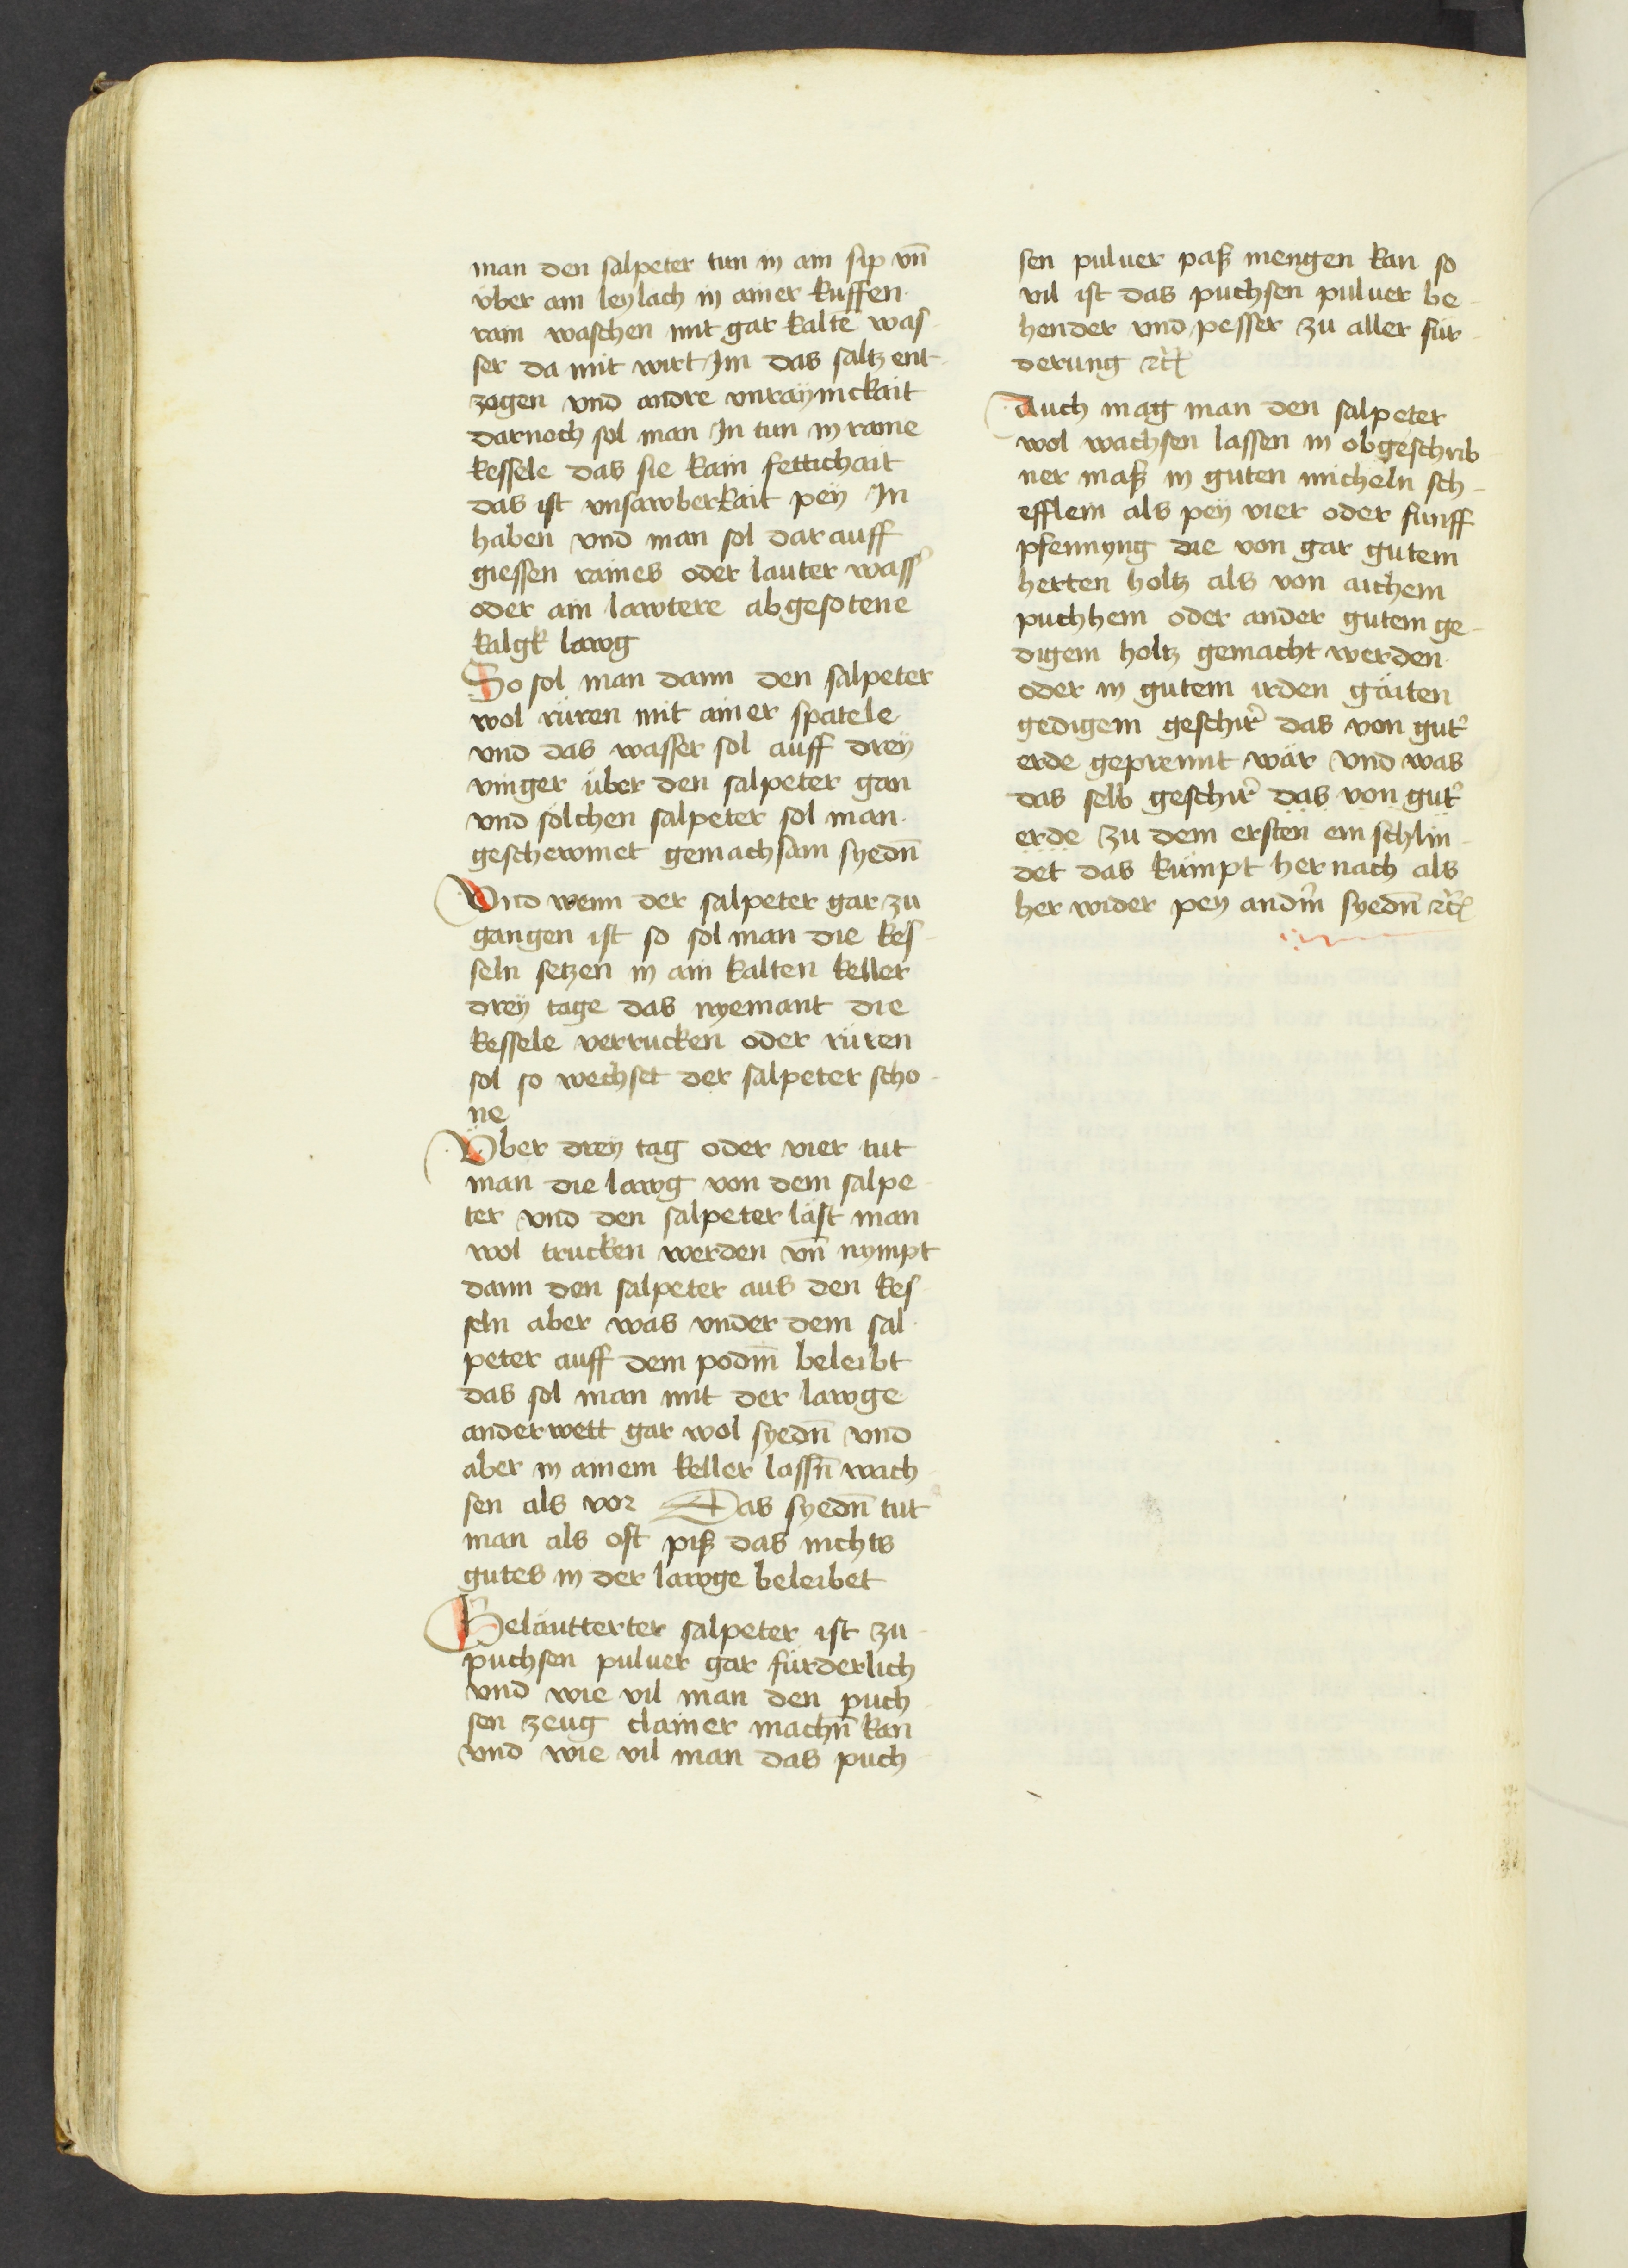 man den salpeter tun in ain sip vn̄
vber ain leylach in ainer kuffen
rain waschen mit gar kaltē was
ser da mit wirt Im das saltz ent-
zogen vnd andre vnraÿnickait
darnoch sol man In tun in raine
kessele das sie kain fettichait
das ist vnsawberkait peÿ In
haben vnd man sol darauff
giessen raines oder lauter wass̉
oder ain lawtere abgesotene
kalgk lawg
So sol man dann den salpeter
wol rüren mit ainer spatele
vnd das wasser sol auff dreÿ
vinger über den salpeter gan
vnd sölchen salpeter sol man
geschewmet gemachsam syedn̄
Vnd wenn der salpeter gar zu
gangen ist so sol man die kes
seln setzen in ain kalten keller
dreÿ tage das nyemant die
kessele verrucken oder rüren
sol so wechset der salpeter scho-
ne
Vber dreÿ tag oder vier tut
man die lawg von dem salpe
ter vnd den salpeter läst man
wol trucken werden vn̄ nympt
dann den salpeter aus den kes
seln aber was vnder dem sal
peter auff dem podm̄ beleibt
das sol man mit der lawge
anderwett gar wol syedn̄ vnd
aber in ainem keller lassn̄ wach
sen als vor Das syedn̄ tut
man als oft piß das nichts
gutes in der lawge beleibet
Geläutterter salpeter ist zu
puchsen puluer gar fürderlich
vnd wie vil man den puch
sen zeug clainer machn̄ kan
vnd wie vil man das puch
sen puluer paß mengen kan so
vil ist das puchsen puluer be
hender vnd pesser zu aller für
derung ⁊c̃
Auch mag man den salpeter
wol wachsen lassen in obgeschrib
ner maß in guten micheln sch-
efflein als peÿ vier oder funff
pfennyng die von gar gutem
herten holtz als von aichem
puchhem oder ander gutem ge-
digem holtz gemacht werden
oder in gutem irden gäuten
gedigem geschir̉ das von gut̉
erde geprennt wär vnd was
das selb geschir̉ das von gut̉
erde zu dem ersten ein schlin
det das kumpt hernach als
her wider pey andm̉ syedn̄ ⁊c̃